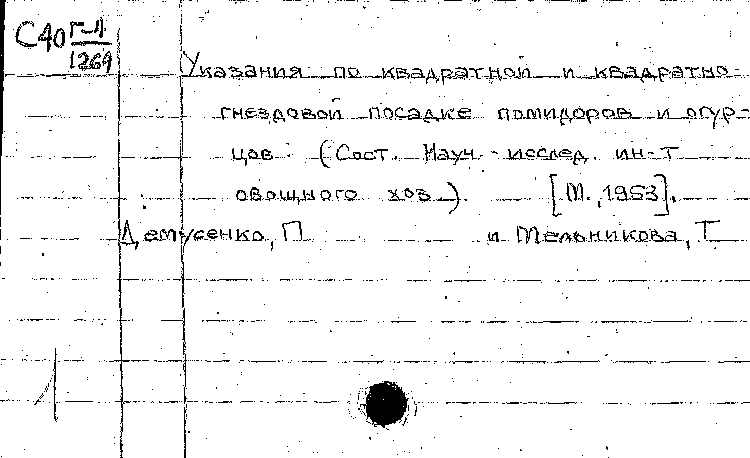 С40 Г-Д
1269
Указания по квадратной и квадратно-
гнездовой посадке помидоров и огур-
цов. (Сост. Науч.-исслед. ин-т
овощного хоз.). [М., 1953].
Демусенко, П и Мельникова, Т
1